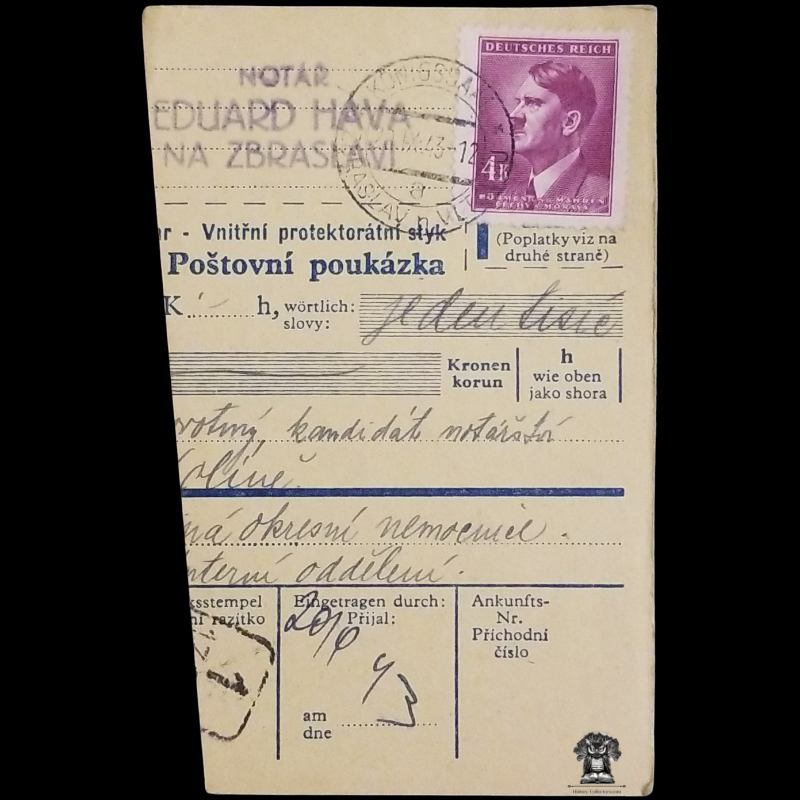 NOTÁŘ
EDUARD HÁVA
NA ZBRASLAVI
DEUTSCHES REICH
4K
BÖHMEN U. MÄHREN
ČECHY A MORAVA
KÖNIGSSAAL
43-12
a
ZBRASLAV n. VLT.
er - Vnitřní protektorátní styk
Poštovní poukázka
(Poplatky viz na
druhé straně)
K h, wörtlich:
slovy:
jeden tisíc
Kronen
korun
h
wie oben
jako shora
votný, kandidát notářství
olíně.
ná okresní nemocnice.
nterní oddělení.
sstempel
ní razítko
Eingetragen durch:
Přijal:
20/6
43
am
dne
Ankunfts-
Nr.
Příchodní
číslo